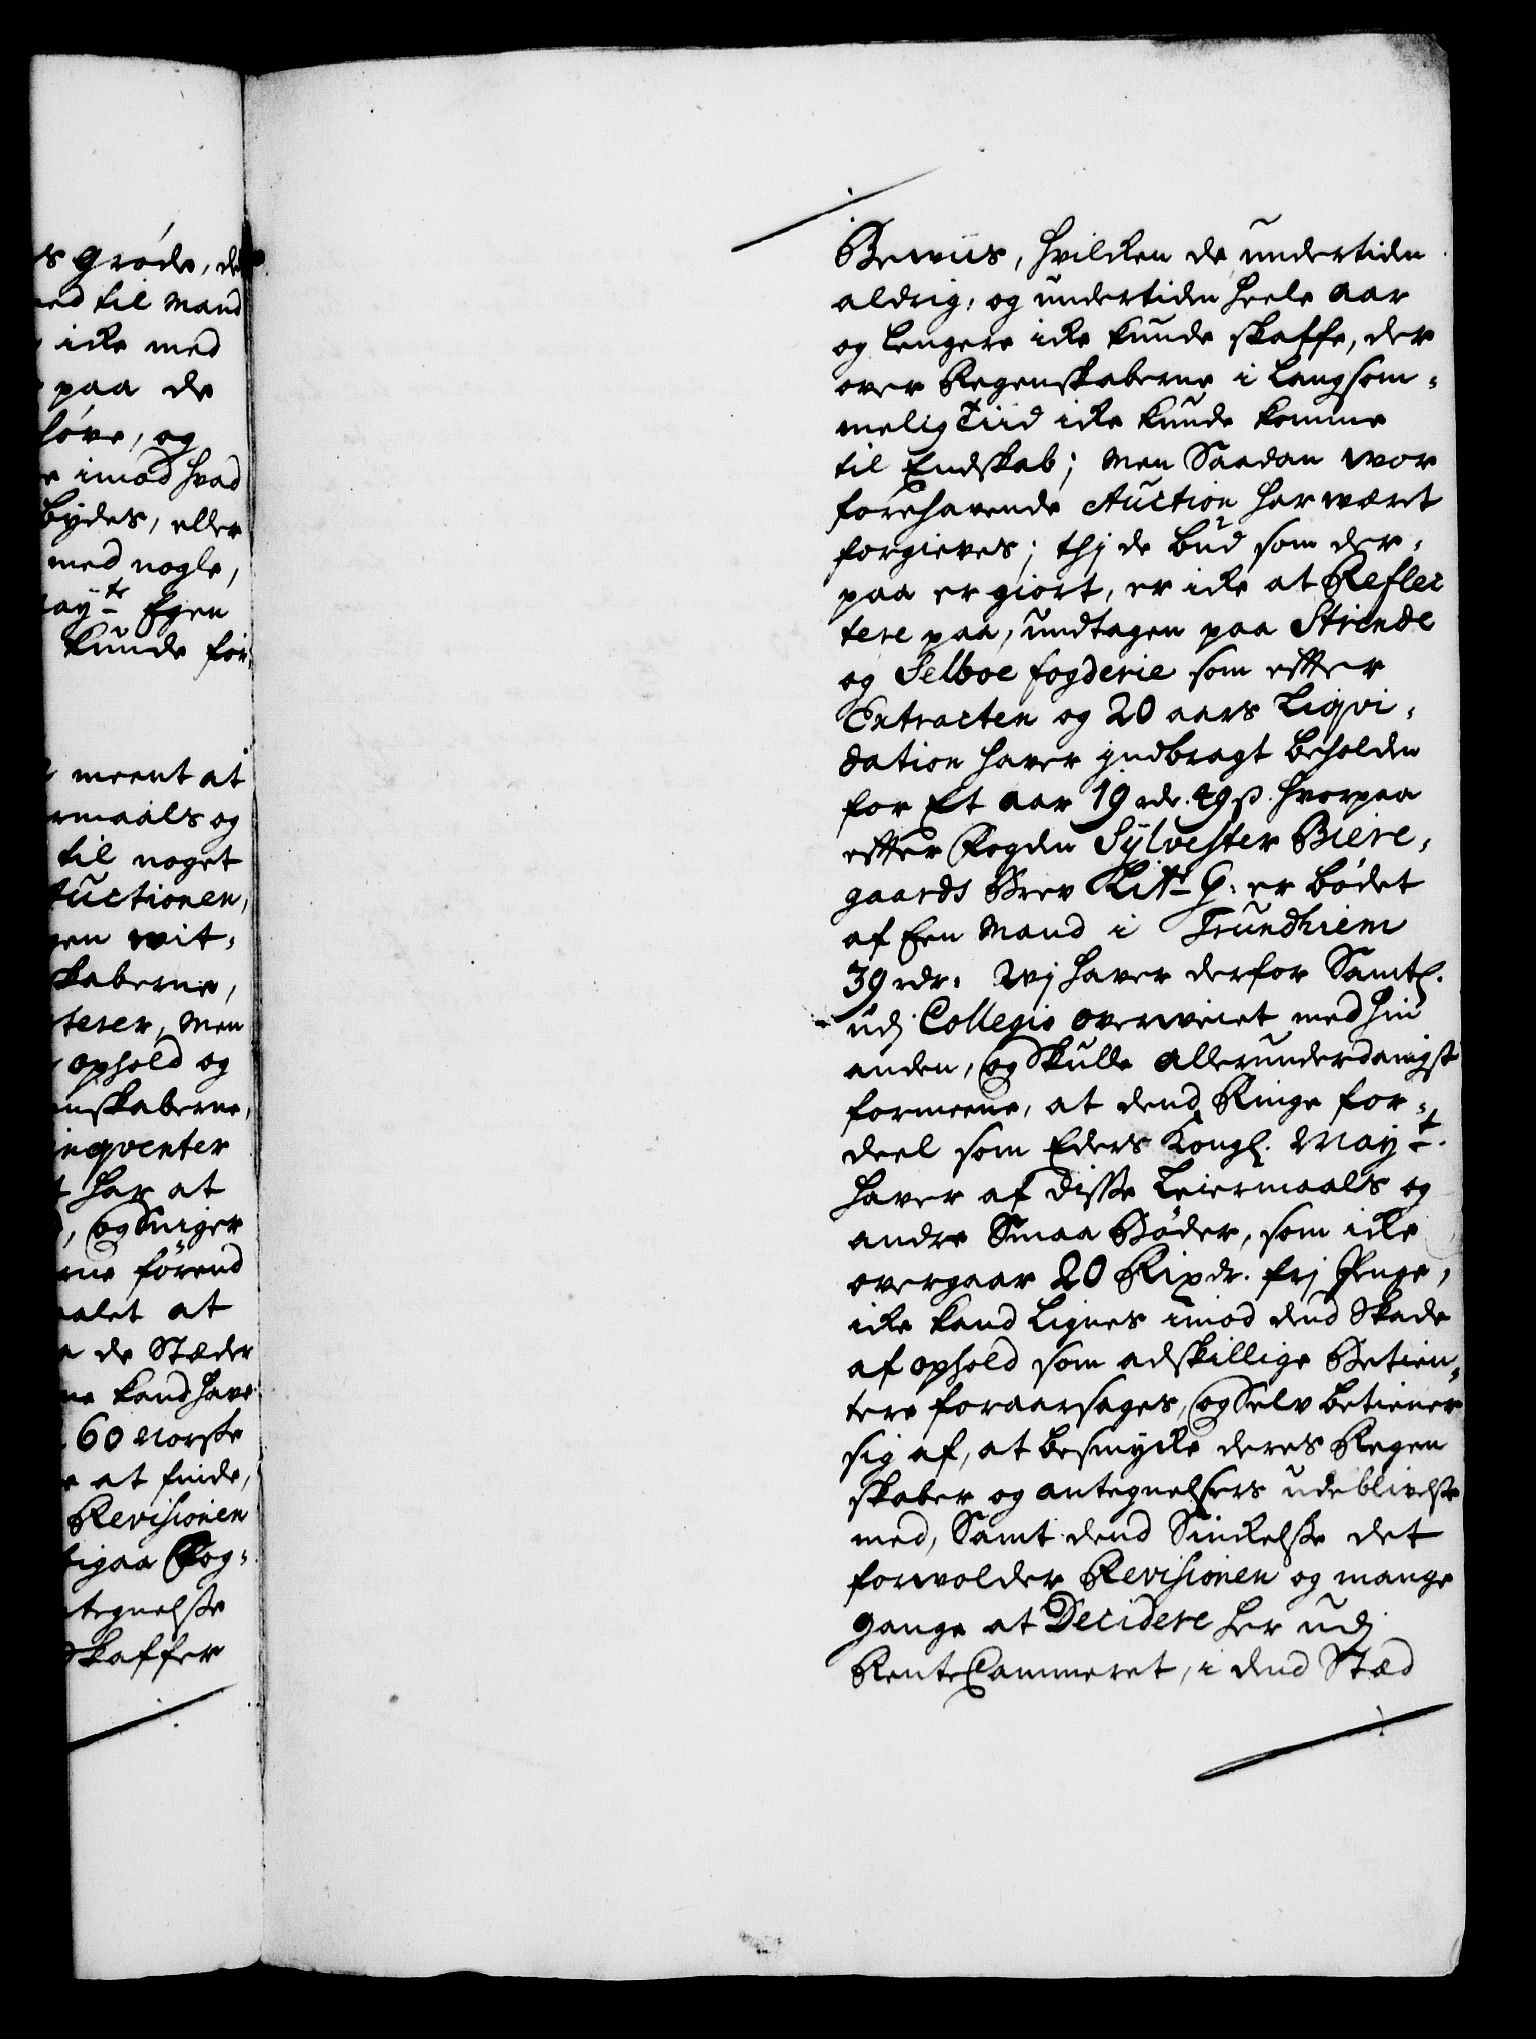 s grøde, de
ed til Mand
icke med
paa de
høve, og
e imod hvad
bydes, eller
med nogle,
ayts Egen
kunde for
meent at
rmaals og
til noget
Auctionen,
en wit-
kaberne,
terer, Men
ophold og
nskaberne,
inqventer
har at
, og Sniger
ne førend
alet at
de Stæder
ne kand have
60 Norske
e at finde,
Revisionen
tigaa Fog-
tegnelse
skaffer
Bewiis, hvilcken de undertiden
aldrig, og undertiden heele aar
og lengere icke kunde skaffe, der
over Regenskaberne i langsom-
melig Tiid icke kunde komme
til Endskab; Men Saadan wor
forehavende Auction har wæret
forgieves; thj de bud som der-
paa er giort, er icke at Reflec
tere paa, undtagen paa Strinde
og Selboe fogderie som efter
Extracten og 20 aars Liqvi-
dation haver jndbragt beholden
for Et aar 19 rdr. 49 ß. hvorpaa
efter Fogden Sylvester Biere-
gaards Brev Litr G. er bødet
af Een Mand i Trundhiem
39 rdr. Wj haver derfor Samtl.
udj Collegio overveiet med hin
anden, og Skulle allerunderdanigst
formeene, at dend Ringe for-
deel som Eders Kongl. Mayt.
haver af disse Leiermaals og
andre Smaa Bøder, som icke
overgaar 20 Rixdr. frj Penge,
icke kand lignes imod dend Skade
af ophold som adskillige Betien-
tere foraarsages, og Selv betiener
sig af, at besmycke deres Regen
skaber og antegnelsers udeblivelse
med, Samt dend Sinckelse det
forvolder Revisionen og mange
gange at Decidere her udj
RenteCammeret, i dend Stæd